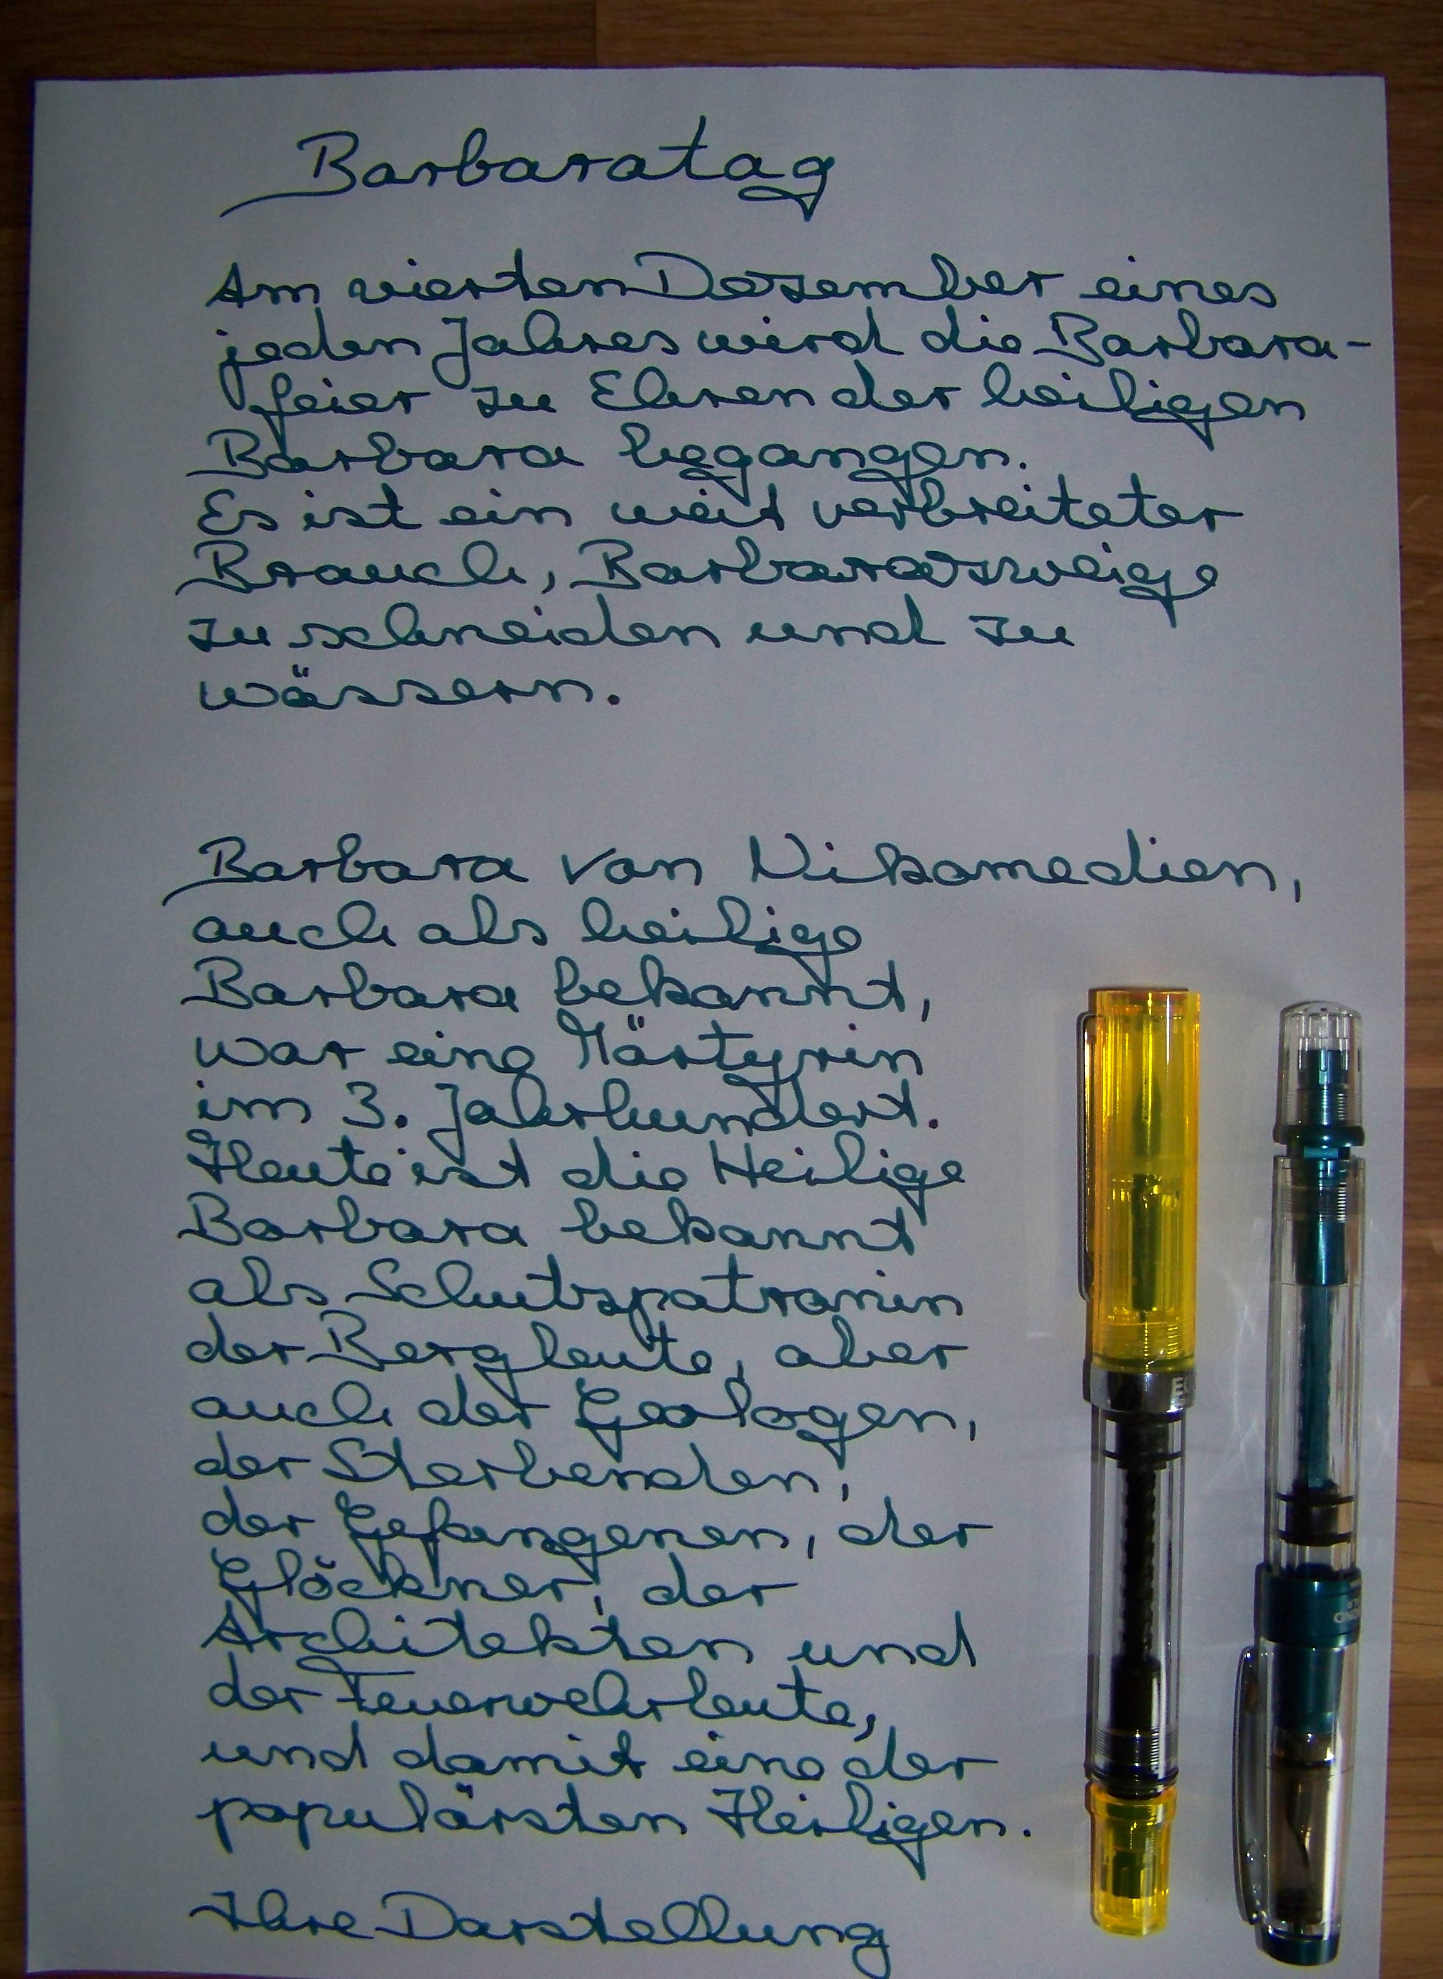 Barbaratag
Am vierten Dezember eines
jeden Jahres wird die Barbara-
feier zu Ehren der heiligen
Barbara begangen.
Es ist ein weit verbreiteter
Brauch, Barbarazweige
zu schneiden und zu
wässern.
Barbara von Nikomedien,
auch als heilige
Barbara bekannt,
war eine Märtyrin
im 3. Jahrhundert.
Heute ist die Heilige
Barbara bekannt
als Schutzpatronin
der Bergleute, aber
auch der Geologen,
der Sterbenden,
der Gefangenen, der
Glöckner, der
Architekten und
der Feuerwehrleute,
und damit eine der
populärsten Heiligen.
Ihre Darstellung